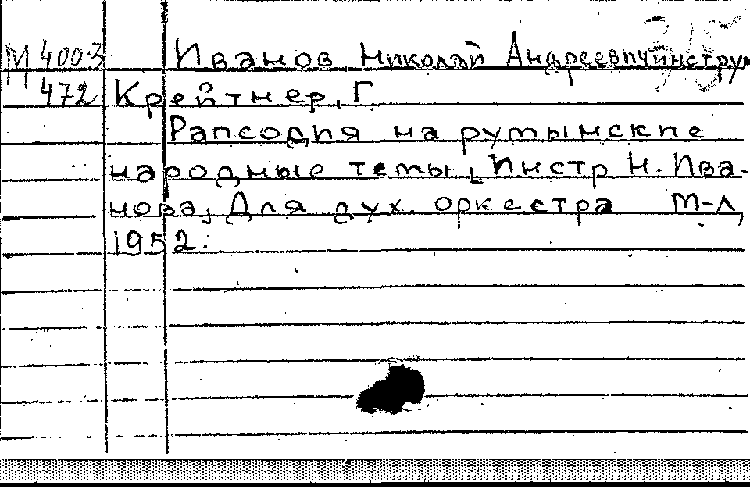 М 4003 Иванов Николай Андреевич инстру
472 Крейтнер, Г.
Рапсодия на румынские
народные темы, Инстр Н. Ива-
нова, Для дух. оркестра М-Л,
1952.